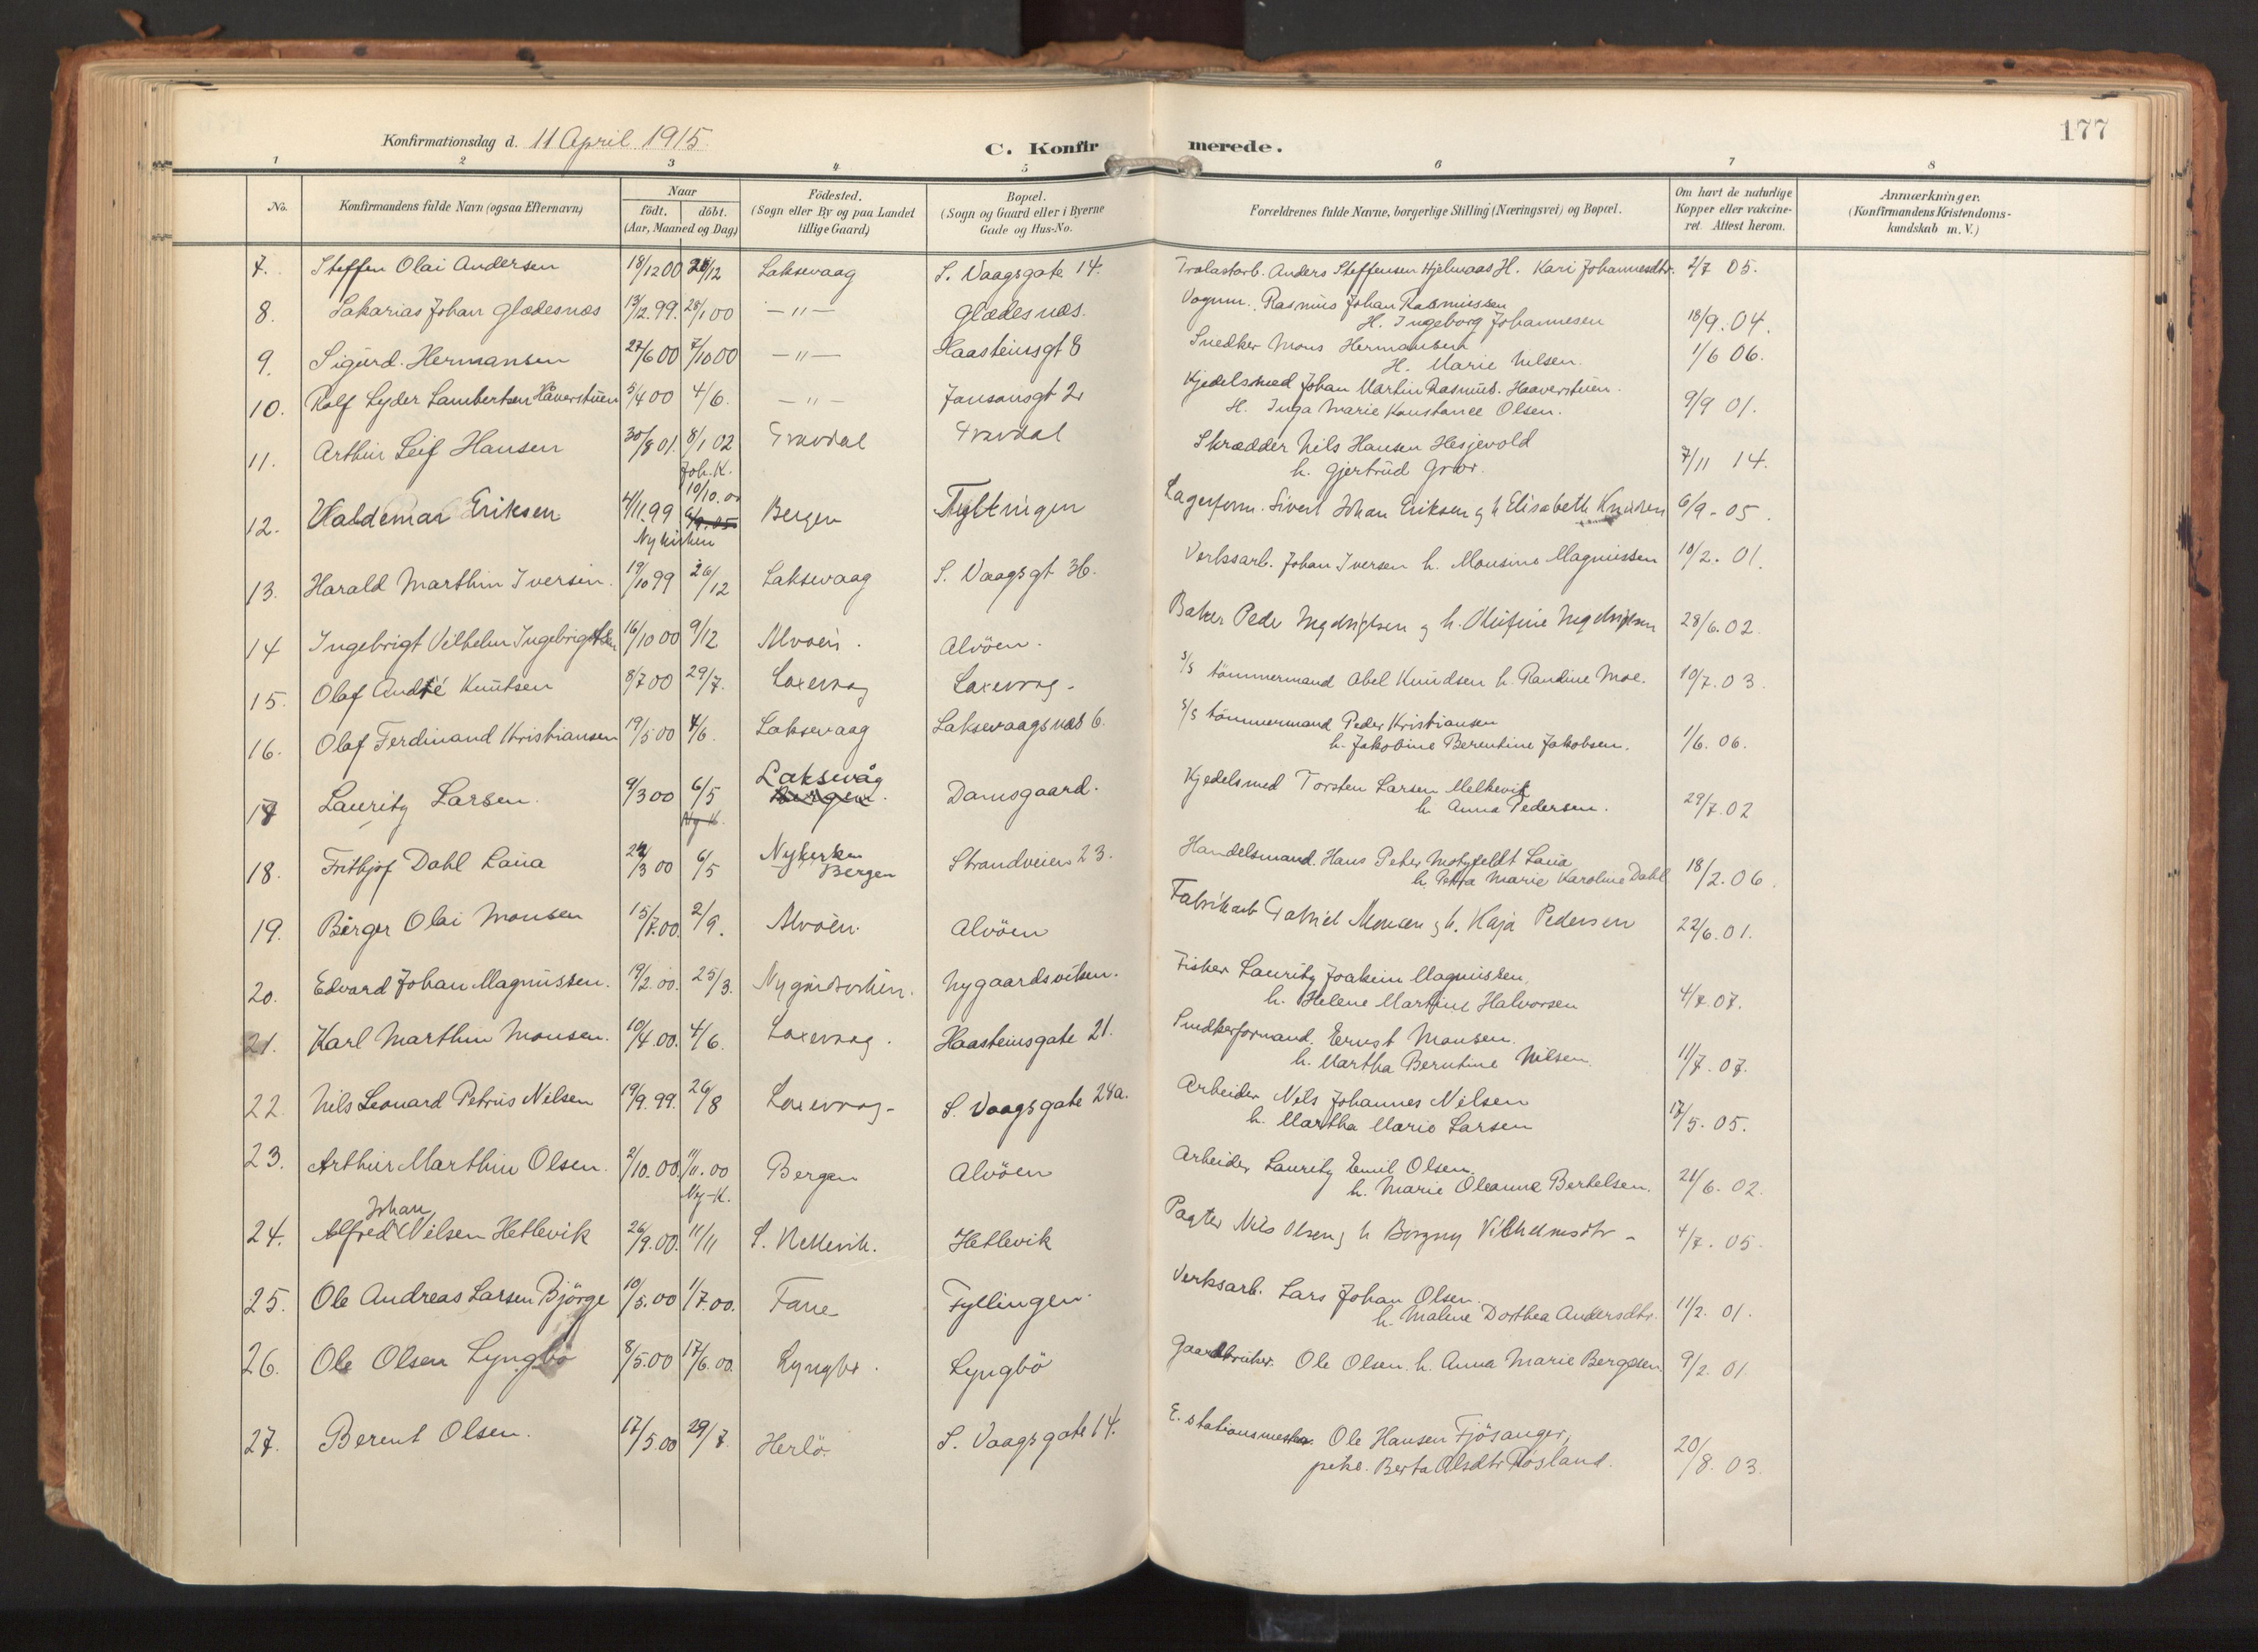 Konfirmationsdag d. 11 April 1915.
C. Konfir merede.
177
1 2 3 4 5 6 7 8
No.
Konfirmandens fulde Navn (ogsaa Efternavn)
Naar
födt. döbt.
(Aar, Maaned og Dag)
Födested.
(Sogn eller By og paa Landet
tillige Gaard)
Bopæl.
(Sogn og Gaard eller i Byerne
Gade og Hus-No.
Forældrenes fulde Navne, borgerlige Stilling (Næringsvei) og Bopæl.
Om havt de naturlige
Kopper eller vakcine-
ret. Attest herom.
Anmærkninger.
(Konfirmandens Kristendoms-
kundskab m. V.)
7. Steffen Olai Andersen 18/12 00 26/12 Laksevaag S. Vaagsgate 14. Anders Steffensen Hjelmaas H. Kari Johannesdtr. 2/7 05.
8. Sakarias Johan Glædesnæs 13/12.99. 28/1 00 —"— Glædesnæs. Vognm. Rasmus Johan Rasmussen
H. Ingeborg Johannesen 18/9.04.
9. Sigurd. Hermansen 27/6 00 7/10 00 —"— Haasteinsgt 8 Snedker Mons Hermansen
H. Marie Nilsen. 1/6 06.
10. Rolf Lyder Lambertsen Haverstuen 5/4 00 4/6. —"— Jansonsgt 2 Kjedelsmed Johan Martin Rasmus. Haaverstuen.
H. Inga Marie Konstance Olsen. 9/9 01.
11. Arthur Leif Hansen 30/8 01. 8/1 02 Gravdal Gravdal Skrædder Nils Hansen Hesjevold
h. Gjertrud Grov. 7/11 14.
Joh. K.
10/10.00
12. Valdemar Eriksen 4/11 99 6/9.05 Bergen Fyllingen Lagerform. Sivert Johan Eriksen og h Elisabeth Knudsen 6/9-05.
Nykirken
13. Harald Marthin Iversen. 19/10 99 26/12 Laksevaag S. Vaagsgt 36. Verksarb. Johan Iversen h. Monsine Magnussen 10/2. 01.
14 Ingebrigt Vilhelm Ingebrigtsen 16/10 00 9/12 Alvøen. Alvöen. Baker Peder Ingebrigtsen og h. Olufine Ingebrigtsen 28/6.02.
15. Olaf André Knutsen 8/7 00 29/7. Laxevaag Laxevaag. s/s tömmermand Abel Knudsen h. Randine Moe. 10/7.03.
16. Olaf Ferdinand Kristiansen 19/5 00 4/6. Laksevaag Laksevaagsnæs 6. s/s tömmermand Peder Kristiansen
h. Jakobine Berentine Jakobsen. 1/6.06.
17 Lauritz Larsen. 9/3 00 6/5 Laksevåg Damsgaard. Kjedelsmed Torsten Larsen Melkevik
Bergen. Ny K. h. Anna Pedersen. 29/7.02
18. Frithjof Dahl Laua 24/3 00 6/5 Nykirken
Bergen Strandveien 23. Handelsmand. Hans Peter Motzfeldt Laua
h. Petra Marie Karoline Dahl 18/2.06.
19. Birger Olai Monsen 15/7.00. 2/9. Alvøen. Alvöen Fabrikarb Gabriel Monsen og h. Kaja Pedersen 22/6.01.
20. Edvard Johan Magnussen. 19/2.00. 25/3. Nygårdsviken. Nygaardsviken. Fisker Lauritz Joakim Magnussen,
h. Helene Martine Halvorsen 4/7.07.
21. Karl Marthin Monsen. 10/4.00. 4/6. Laxevaag. Haasteinsgate 21. Snedkerformand. Ernst Monsen.
h. Martha Berntine Nilsen. 11/7.07.
22. Nils Leonard Petrus Nilsen 19/9.99. 26/8 Laxevaag- S. Vaagsgate 24a. Arbeider Nils Johannes Nilsen
h. Martha Marie Larsen 17/5.05.
23. Arthur Marthin Olsen. 2/10.00. 11/11.00 Bergen Alvöen Arbeider Lauritz Emil Olsen.
Ny-K. h. Marie Oleanne Bertelsen. 21/6.02.
Johan
24. Alfred Nilsen Hetlevik 26/9.00. 11/11 S. Hetlevik. Hetlevik Pagter Nils Olsen og h Borgny Vilhelmsdtr - 4/7.05.
25. Ole Andreas Larsen Bjørge 10/5.00 1/7.00. Fane Fyllingen. Verksarb. Lars Johan Olsen.
h. Malene Dorthea Andersdtr. 11/2.01.
26. Ole Olsen Lyngbö 8/5.00 17/6.00. Lyngbö. Lyngbö Gaardbruker. Ole Olsen h. Anna Marie Bergesen 9/2.01
27. Berent Olsen. 17/5.00 29/7. Herlö. S. Vaagsgate 14. E. stationsmester. Ole Hansen Fjösanger,
pike. Berta Olsdtr Røsland. 20/8.03.